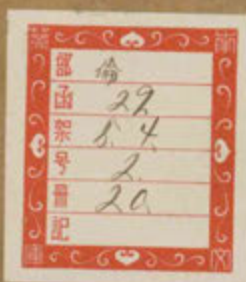 部 倫
函 29
架 5. 4.
号 2.
冊 20.
記